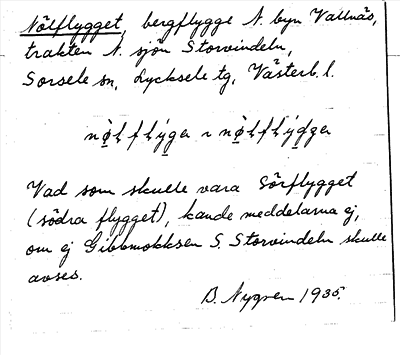 Nölflygget, bergflygge N. byn Vallnäs,
trakten N. sjön Storvindeln,
Sorsele sn, Lycksele tg, Västerb. l.
nö̀lflýga ~ nö̀lflýdga
Vad som skulle vara Sörflygget
(södra flygget), kände meddelarna ej,
om ej Gibbmokksen S. Storvindeln skulle
avses.
B. Nygren 1935.